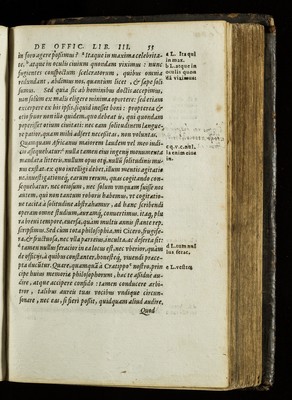 DE OFFIC. LIB. III. 55
in foro agere possimus? ª Itaque in maxima celebrita-
te, ᵇ atque in oculis civium quondam viximus: nunc
fugientes conspectum sceleratorum, quibus omnia
redundant, abdimus nos, quantum licet, & sæpe soli
sumus. Sed quia sic ab hominibus doctis accepimus,
non solùm ex malis eligere minima oportere: sed etiam
excerpere ex his ipsis, siquid inesset boni: propterea &
otio fruor non illo quidem, quo debeat is, qui quondam
peperisset otium civitati: nec eam solitudinem langue-
re patior, quam mihi adfert necessitas, non voluntas.
Quamquam Africanus maiorem laudem vel meo iudi-
cio assequebatur. ᶜ nulla tamen eius ingenii monumenta
mandata litteris, nullum opus otij, nullũ solitudinis mu-
nus exstat. ex quo intelligi debet, illum mentis agitatio-
ne, investigationeq́; earum rerum, quas cogitando con-
sequebatur, nec otiosum, nec solum umquam fuisse. nos
autem, qui non tantum roboris habemus, ut cogitatio-
ne tacita à solitudine abstrahamur, ad hanc scribendi
operam omne studium, curamq́; convertimus. itaq; plu-
ra brevi tempore, eversa, quàm multis annis stante rep.
scripsimus. Sed cùm tota philosophia, mi Cicero, frugife-
ra, & fructuosa, nec ulla pars eius, inculta, ac deserta sit:
ᵈ tamen nullus feracior in ea locus est, nec uberior, quàm
de officijs, à quibus constanter, honesteq́; vivendi præce-
pta ducũtur. Quare, quamquã à Cratippo ᵉ nostro, prin-
cipe huius memoriæ philosophorum, hæc te assiduè au-
dire, atque accipere confido: tamen conducere arbi-
tror, talibus aureis tuas vocibus undique circun-
sonare, nec eas, si fieri possit, quidquam aliud audire.
Quod
a L. Ita qui
in max.
b L. atque in
oculis quon
dã viximus
c q. v. c. nul-
la enim eius
in.